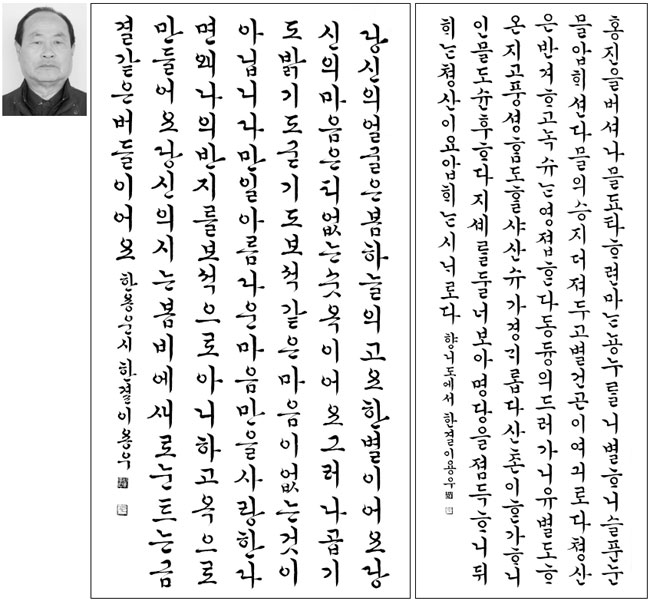 당신의얼굴은봄하늘의고요한별이어요당
신의마음은티없는숫옥이어요그러나곱기
도밝기도굳기도보석같은마음이없는것이
아닙니다만일아름다운마음만을사랑한다
면왜나의반지를보석으로아니하고옥으로
만들어요당신의시는봄비에새로눈트는금
결같은버들이어요 한용운시 한결이용우
홍진을버셔나믈됴타ᄒᆞ련마ᄂᆞᆫ공누를니별ᄒᆞ니슬픈눈
믈압ᄒᆡ션다믈의승지더져두고별건곤이여긔로다쳥산
은반겨ᄒᆞ고녹슈ᄂᆞᆫ영졉ᄒᆞᆫ다동듕의드러가니유별도ᄒᆞ
온지고풍셩홈도ᄒᆞᆯ샤산슈가경긔롭다산촌이ᄒᆞᆫ가ᄒᆞ니
인믈도슌후ᄒᆞ다지셰를둘너보아명당을졈득ᄒᆞ니뒤
ᄒᆡᄂᆞᆫ쳥산이요압ᄒᆡᄂᆞᆫ시닉로다 향니도에서 한결이용우